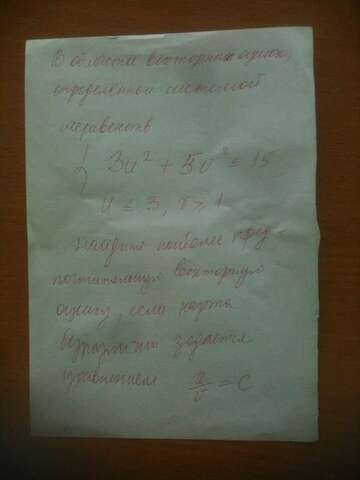 В области векторных оценок,
определенной системой
неравенств
{ 3u² + 5v² ≤ 15
u ≤ 3, v ≥ 1
найдите наиболее пред-
почтительную векторную
оценку, если карта
безразличия задается
уравнением u/v = C